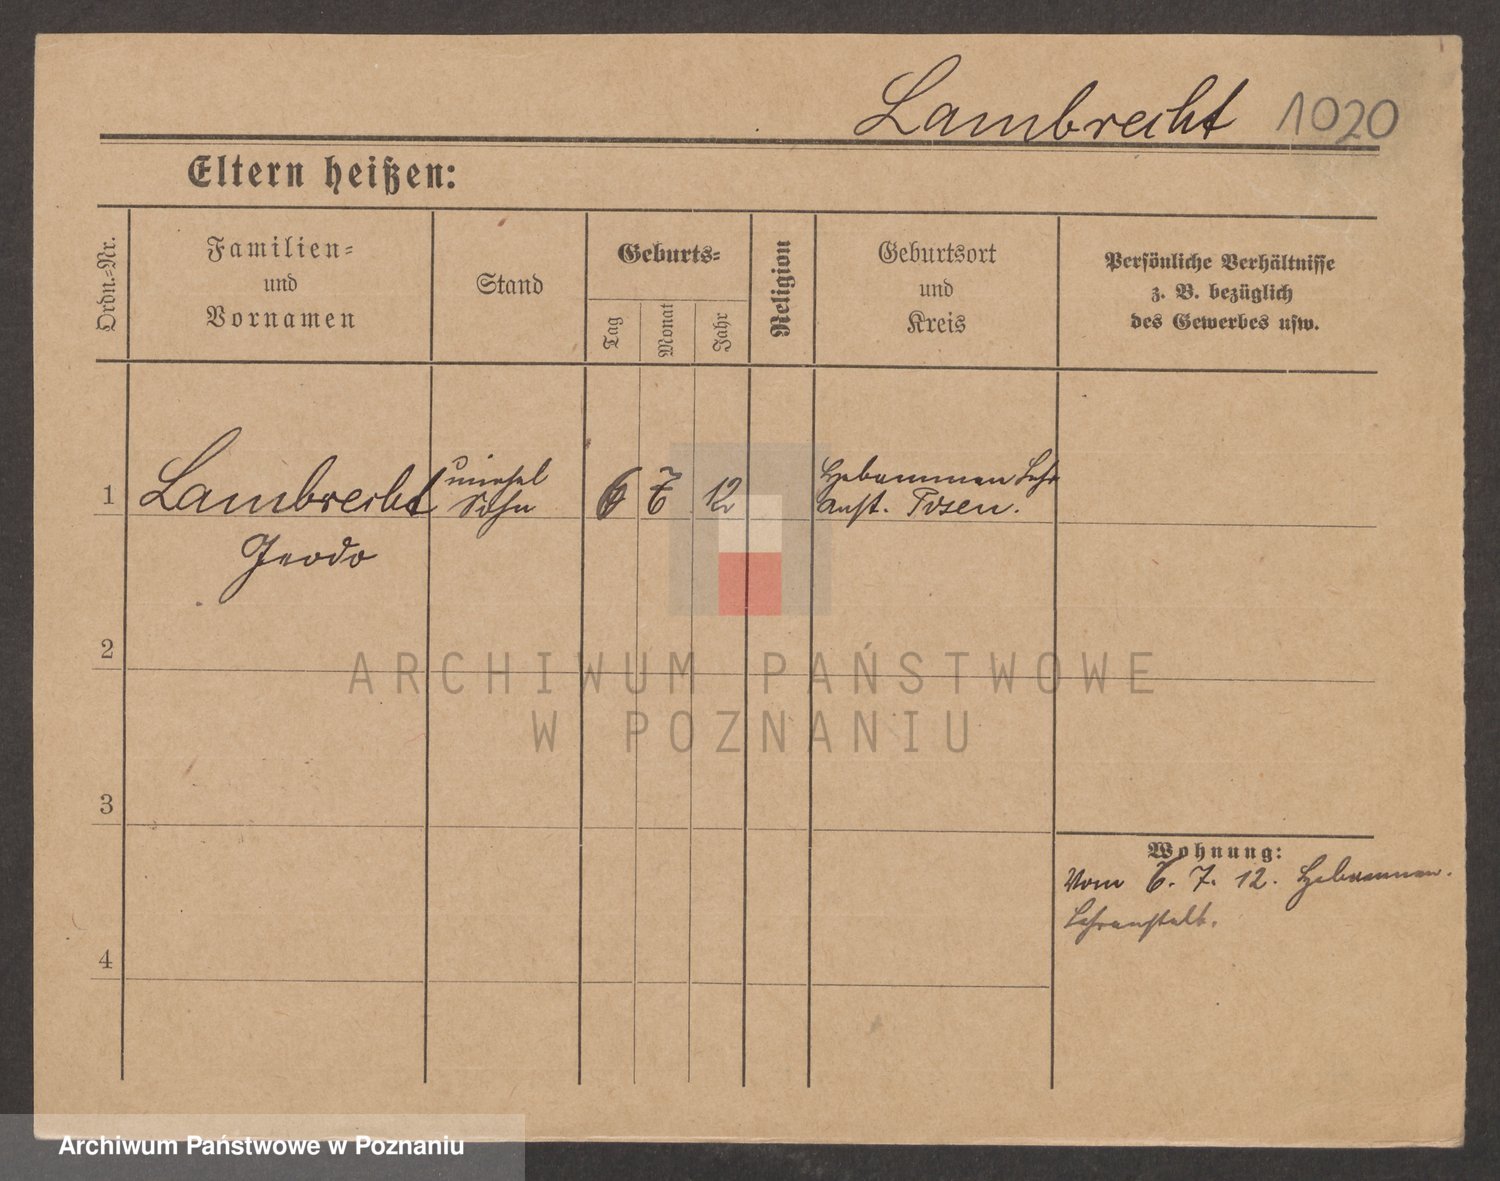 Lambrecht 1020
Eltern heißen:
Ordn.-Nr.
Familien-
und
Vornamen
Stand
Geburts-
Tag
Monat
Jahr
Religion
Geburtsort
und
Kreis
Persönliche Verhältnisse
z. B. bezüglich
des Gewerbes usw.
1
Lambrecht
unehel
Sohn
6
12
Hebammen Lehr
Anst. Posen.
2
3
4
Wohnung:
Vom 6. 7. 12. Hebammen-
Lehranstalt.
ARCHIWUM PAŃSTWOWE
W POZNANIU
Archiwum Państwowe w Poznaniu